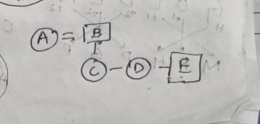 A = B
C - D - E